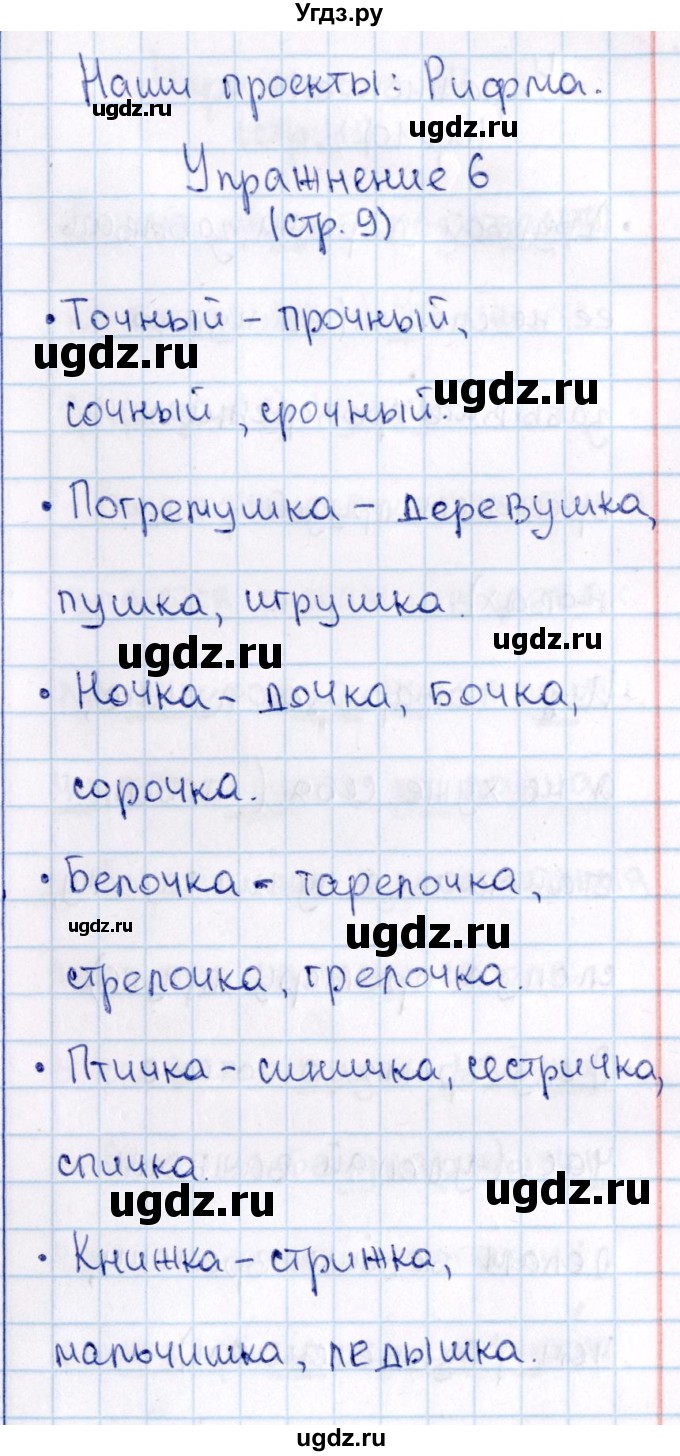 Угдз.ру
Наши проекты: Рифма.
ugdz.ru
ugdz.ru
Упражнение 6
(стр. 9)
• Точный - прочный,
ugdz.ru
ugdz.ru
сочный, срочный.
• Погремушка - деревушка,
пушка, игрушка.
ugdz.ru
ugdz.ru
• Ночка - дочка, бочка,
сорочка.
• Белочка - тарелочка,
ugdz.ru
ugdz.ru
стрелочка, грелочка.
• Птичка - синичка, сестричка,
спичка.
ugdz.ru
ugdz.ru
• Книжка - стрижка,
мальчишка, ледышка.
ugdz.ru